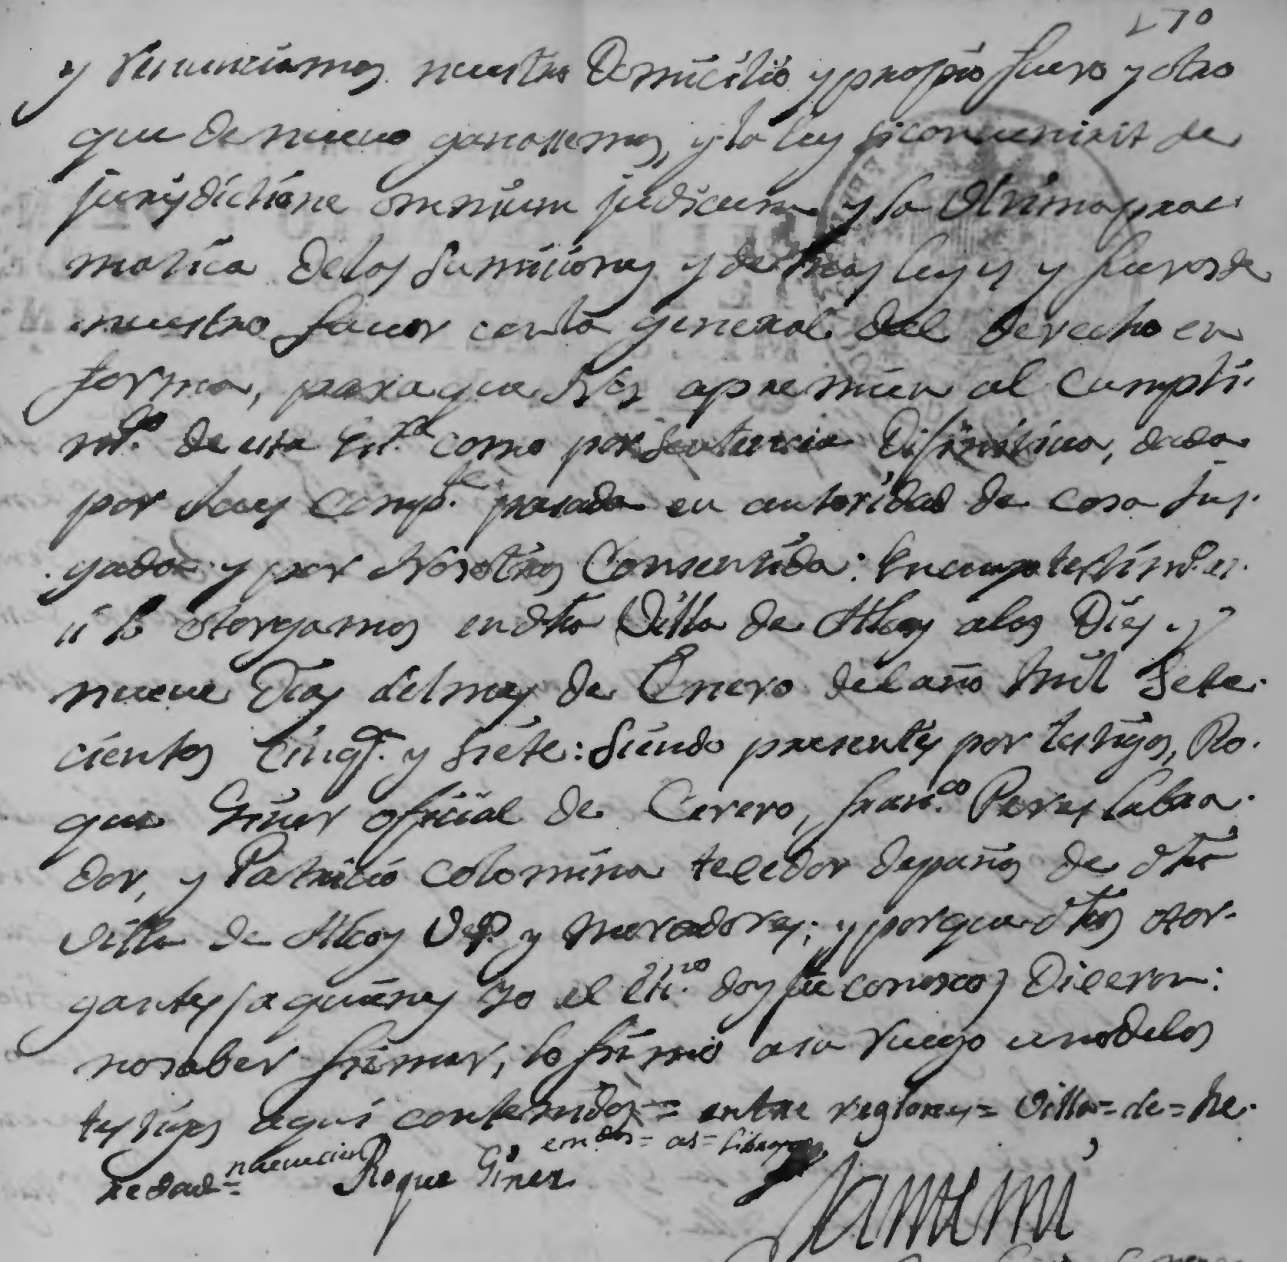 270
y renunciamos nuestro Domicilio y propio fuero y otro
que de nuevo ganaremos, y la ley si convenirit de
jurisdictione omnium judicum y la ultima prac
matica de las sumiciones y demas leyes y fueros de
nuestro favor con la general del derecho en
forma, para que nos apremien al cumpli-
mto. de esta Esra. como por sentencia Difinitiva, dada
por Juez Compte. pasada en autoridad de cosa jus-
gada y por Nosotros Consentida: En cuyo testimo.
lo otorgamos en dha Villa de Alcoy a los Dies y
nueve Dias del mes de Enero del año Mil Sete-
cientos Cinqta. y siete: siendo presentes por testigos, Ro-
que Giner oficial de Cerero, Franco. Peres labra-
dor, y Patricio Colomina texedor de paños de dha
Villa de Alcoy Vezs. y moradores; y porque dhos otor-
gantes (a quienes yo el Esno. doy fee conosco) Dixeron:
no saber firmar, lo firmó a su ruego uno de los
testigos aqui contenidos = entre reglones = Villa = de = he-
redad =
Roque Giner
Ante mi